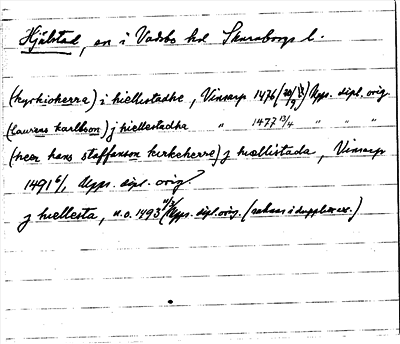 Hjälstad, sn i Vadsbo hd Skaraborgs l.
(kyrkioherre) i hiellestadhe, Vinsarp 1476 Upps. dipl. orig.
(Laurens karlsson) j hiellestadha " 1477 13/4 " " "
(heer hans staffansson kirkeherre) j hiællistada, Vinsarp
1491 6/1 Upps. dipl. orig.
j hiellesta, u.o. 1493 Upps. dipl. orig. (saknas i dupplettex.)